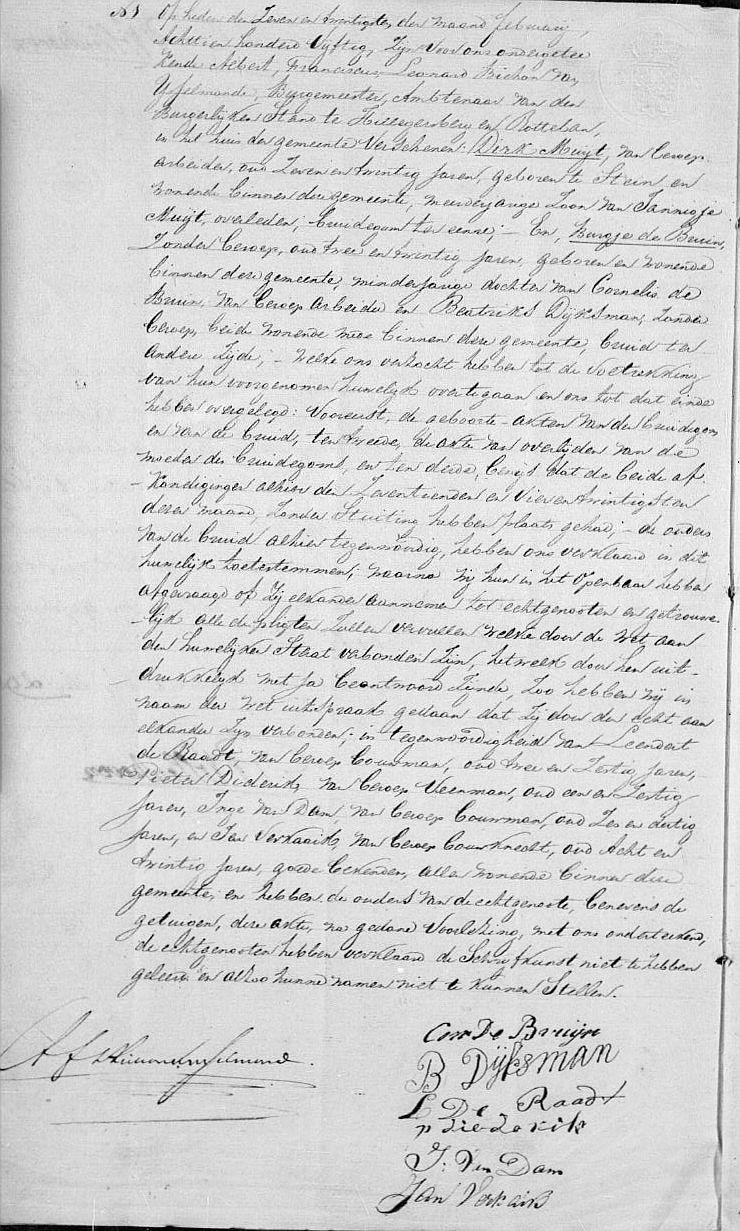 No 5 Op heden den Zeven en twintigsten der maand februarij,
Achttien honderd Vyftig, Zyn voor ons ondergetee
kende Albert, Franciscus, Leonard Bichon van
Ysselmonde, Burgemeester, Ambtenaar van den
Burgerlyken Stand te Hillegersberg en Rotteban,
in het huis der gemeente Verschenen: Dirk Muyt, van beroep
arbeider, oud Zeven en twintig jaren, geboren te Stein, en
wonende binnen deze gemeente, meerderjarige Zoon van Jannigje
Muijt, overleden; bruidegom ter eenre; – En, Burgje de Bruin,
Zonder beroep, oud twee en twintig jaren, geboren en wonende
binnen deze gemeente, minderjarige dochter van Cornelis de
Bruin, van beroep arbeider en Beatriks Dyksman, Zonder
beroep, beide wonende mede binnen deze gemeente, bruid ter
andere Zyde; – welke ons verzocht hebben tot de voltrekking
van hun voorgenomen huwelyk overtegaan en ons tot dat einde
hebben overgelegd: Vooreerst, de geboorte-akten van den bruidegom
en van de bruid, ten tweede, de akte van overlyden van de
moeder des bruidegoms, en ten derde, bewys dat de beide af-
-kondigingen alhier den Zeventienden en Vier en twintigsten
dezer maand, Zonder Stuiting hebben plaats gehad; – de ouders
van de bruid alhier tegenwoordig, hebben ons verklaard in dit
huwelyk toetestemmen; waarna wy hun in het openbaar hebben
afgevraagd of Zy elkander aannemen tot echtgenooten en getrouwe-
-lyk alle de pligten Zullen vervullen welke door de wet aan
den huwelyken Staat verbonden Zyn, hetwelk door hen uit-
-drukkelyk met ja beantwoord Zynde, Zoo hebben wy in
naam der wet uitspraak gedaan dat Zy door den echt aan
elkander Zyn verbonden; – in tegenwoordigheid van Leendert
de Raadt, van beroep bouwman, oud twee en Zestig jaren,
Pieter Diderik, van beroep Veenman, oud een en Zestig
jaren, Inge van Dam, van beroep bouwman, oud Zes en dertig
jaren, en Jan Verkaaik, van beroep bouwknecht, oud Acht en
twintig jaren, goede bekenden, allen wonende binnen deze
gemeente; en hebben de ouders van de echtgenoote, benevens de
getuigen, deze akte, na gedane Voorlezing, met ons onderteekend,
de echtgenooten hebben verklaard de Schryfkunst niet te hebben
geleerd en alzoo hunne namen niet te kunnen Stellen.
Cor De Bruijn
B Dijksman
L De Raadt
p Diederik
I: Van Dam
Jan Verkaik